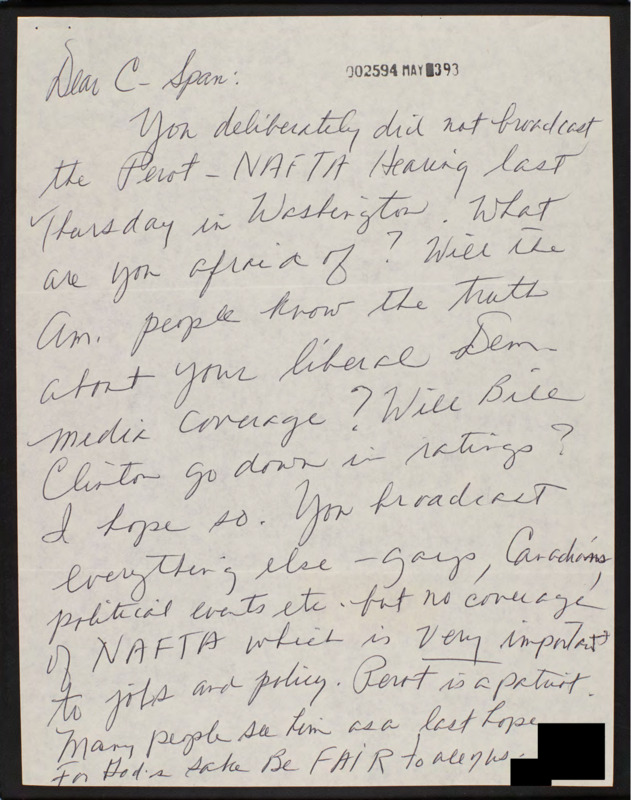 Dear C-Span:
002594 MAY 393
You deliberately did not broadcast
the Perot - NAFTA Hearing last
Thursday in Washington. What
are you afraid of? Will the
Am. people know the truth
about your liberal Dem
media coverage? Will Bill
Clinton go down in ratings?
I hope so. You broadcast
everything else - gays, Canadians,
political events etc. but no coverage
of NAFTA which is Very important
to jobs and policy. Perot is a patriot.
Many people see him as a last hope
For God's sake Be FAIR to all of us.